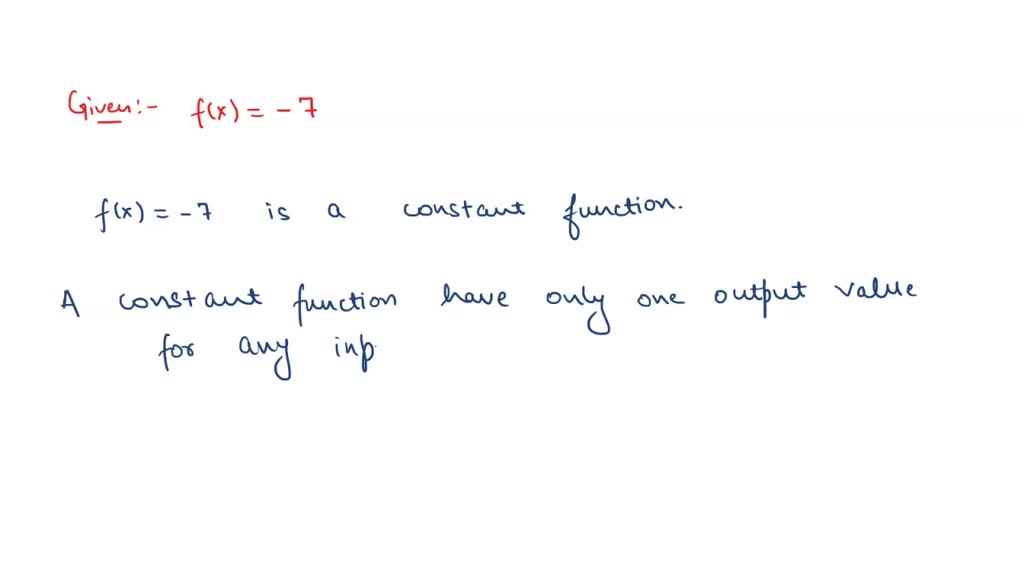 Given:- f(x) = - 7
f(x) = - 7 is a constant function.
A constant function have only one output value
for any inp